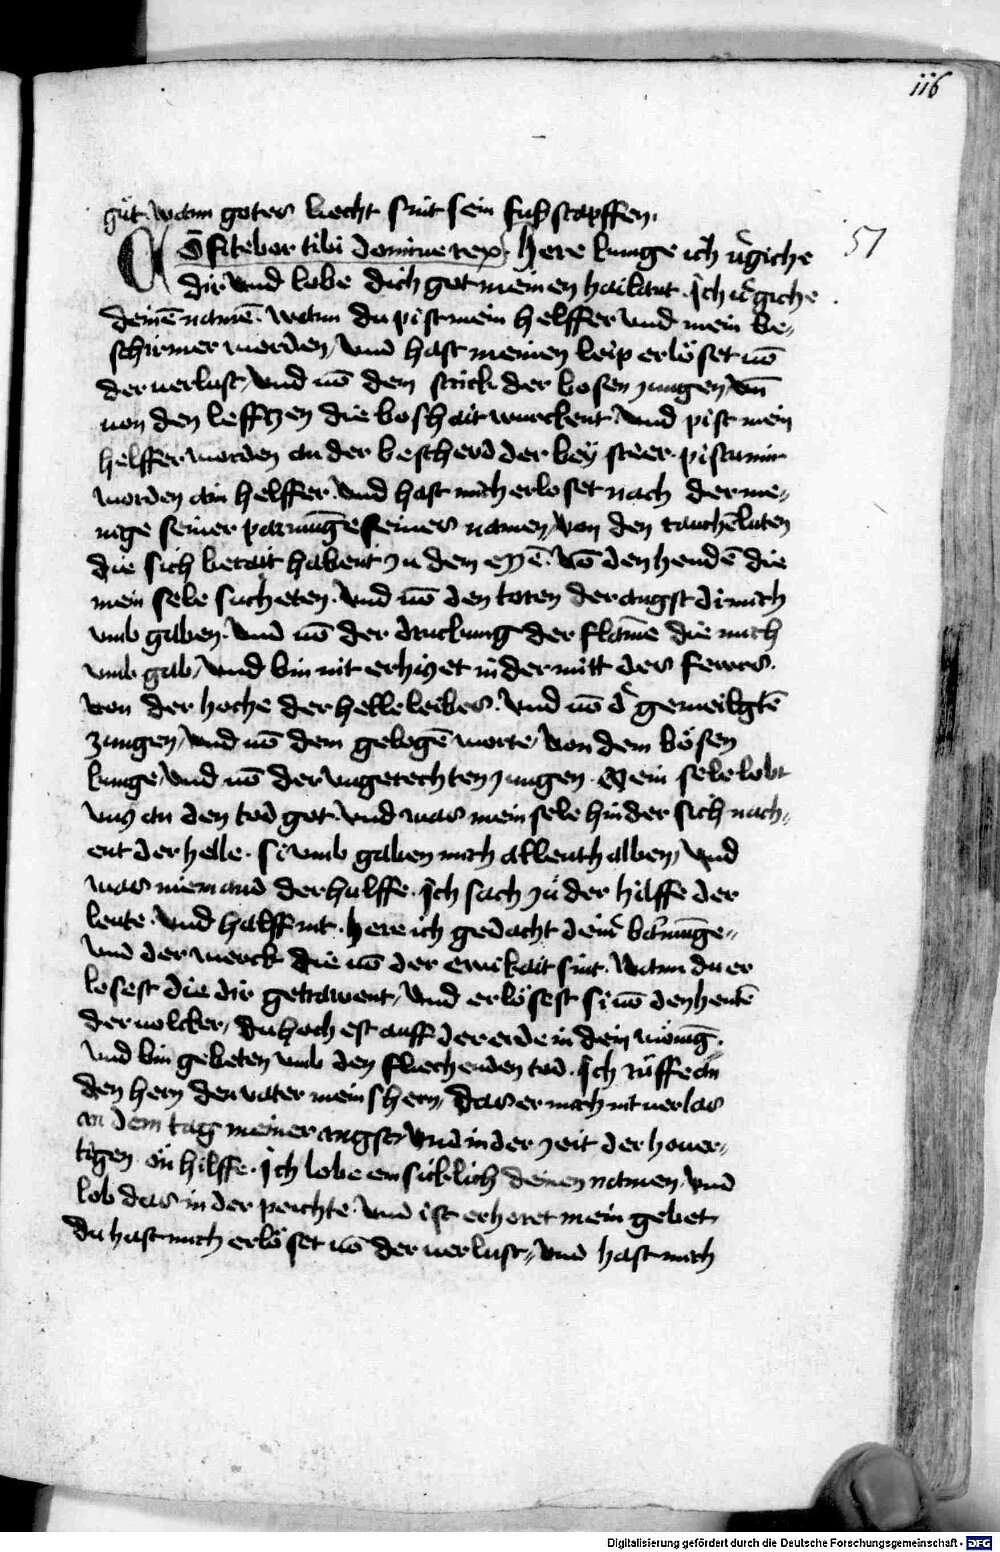 116
gůt. wann gotes liecht sint sein fußstapffen.
Cōfitebor tibi domine rex. Here kunge ich v̓giche 51
dir vnd lobe dich got meinen hailant. Ich v̓giche
deinē namē. wann du pist mein helffer vnd mein be„
schirmer worden, vnd hast meinen leip erlöset uō
der verlust, vnd uō dem strick der bosen zungen, vn̄
von den lefftzen die boshait wurckent. vnd pist mein
helffer worden an der bescherd der bey steer. pistu mir
worden ain helffer. vnd hast mich erloset nach der me„
nige seiner parmūge seines namen, von den
die sich berait habent zu dem ezzē. vō den hendē die
mein sele sucheten. vnd uō den toren der angst di mich
vmb gaben. vnd uō der druckung der flāme die mich
vmb gab, vnd bin nit erhizet in der mitt des fewrs.
von der hoche der helle leibes. vnd uō d̓ gemeiligtē
zungen, vnd uō dem gelogē worte, von dem bösen
kunge, vnd uō der vngerechten zungen. Mein sele lobt
vnz an den tod got. vnd was mein sele hinder sich nach„
ent der helle. si vmb gaben mich allenthalben, vnd
was niemand der hulffe. Ich sach zů der hilffe der
leute. vnd halff nit. Here ich gedacht dein̓ barmūge„
vnd der werck die uō der ewikait sint. Wann du er
losest die dir getrawent, vnd erlösest si uō den hentē
der volcker, du hochest auff der erde in dein wonūg.
vnd bin gebeten vmb den fliechenden tod. Ich růffe an
den hern den vater meins hern, das er mich nit verlas
an dem tag meiner angst, vnd in der zeit der houer„
tigen ōn hilffe. Ich lobe emsicklich deinen namen, vnd
lob das in der peichte. vnd ist erhoret mein gebet
du hast mich erlöset uō der verlust„ vnd hast mich
Digitalisierung gefördert durch die Deutsche Forschungsgemeinschaft - DFG